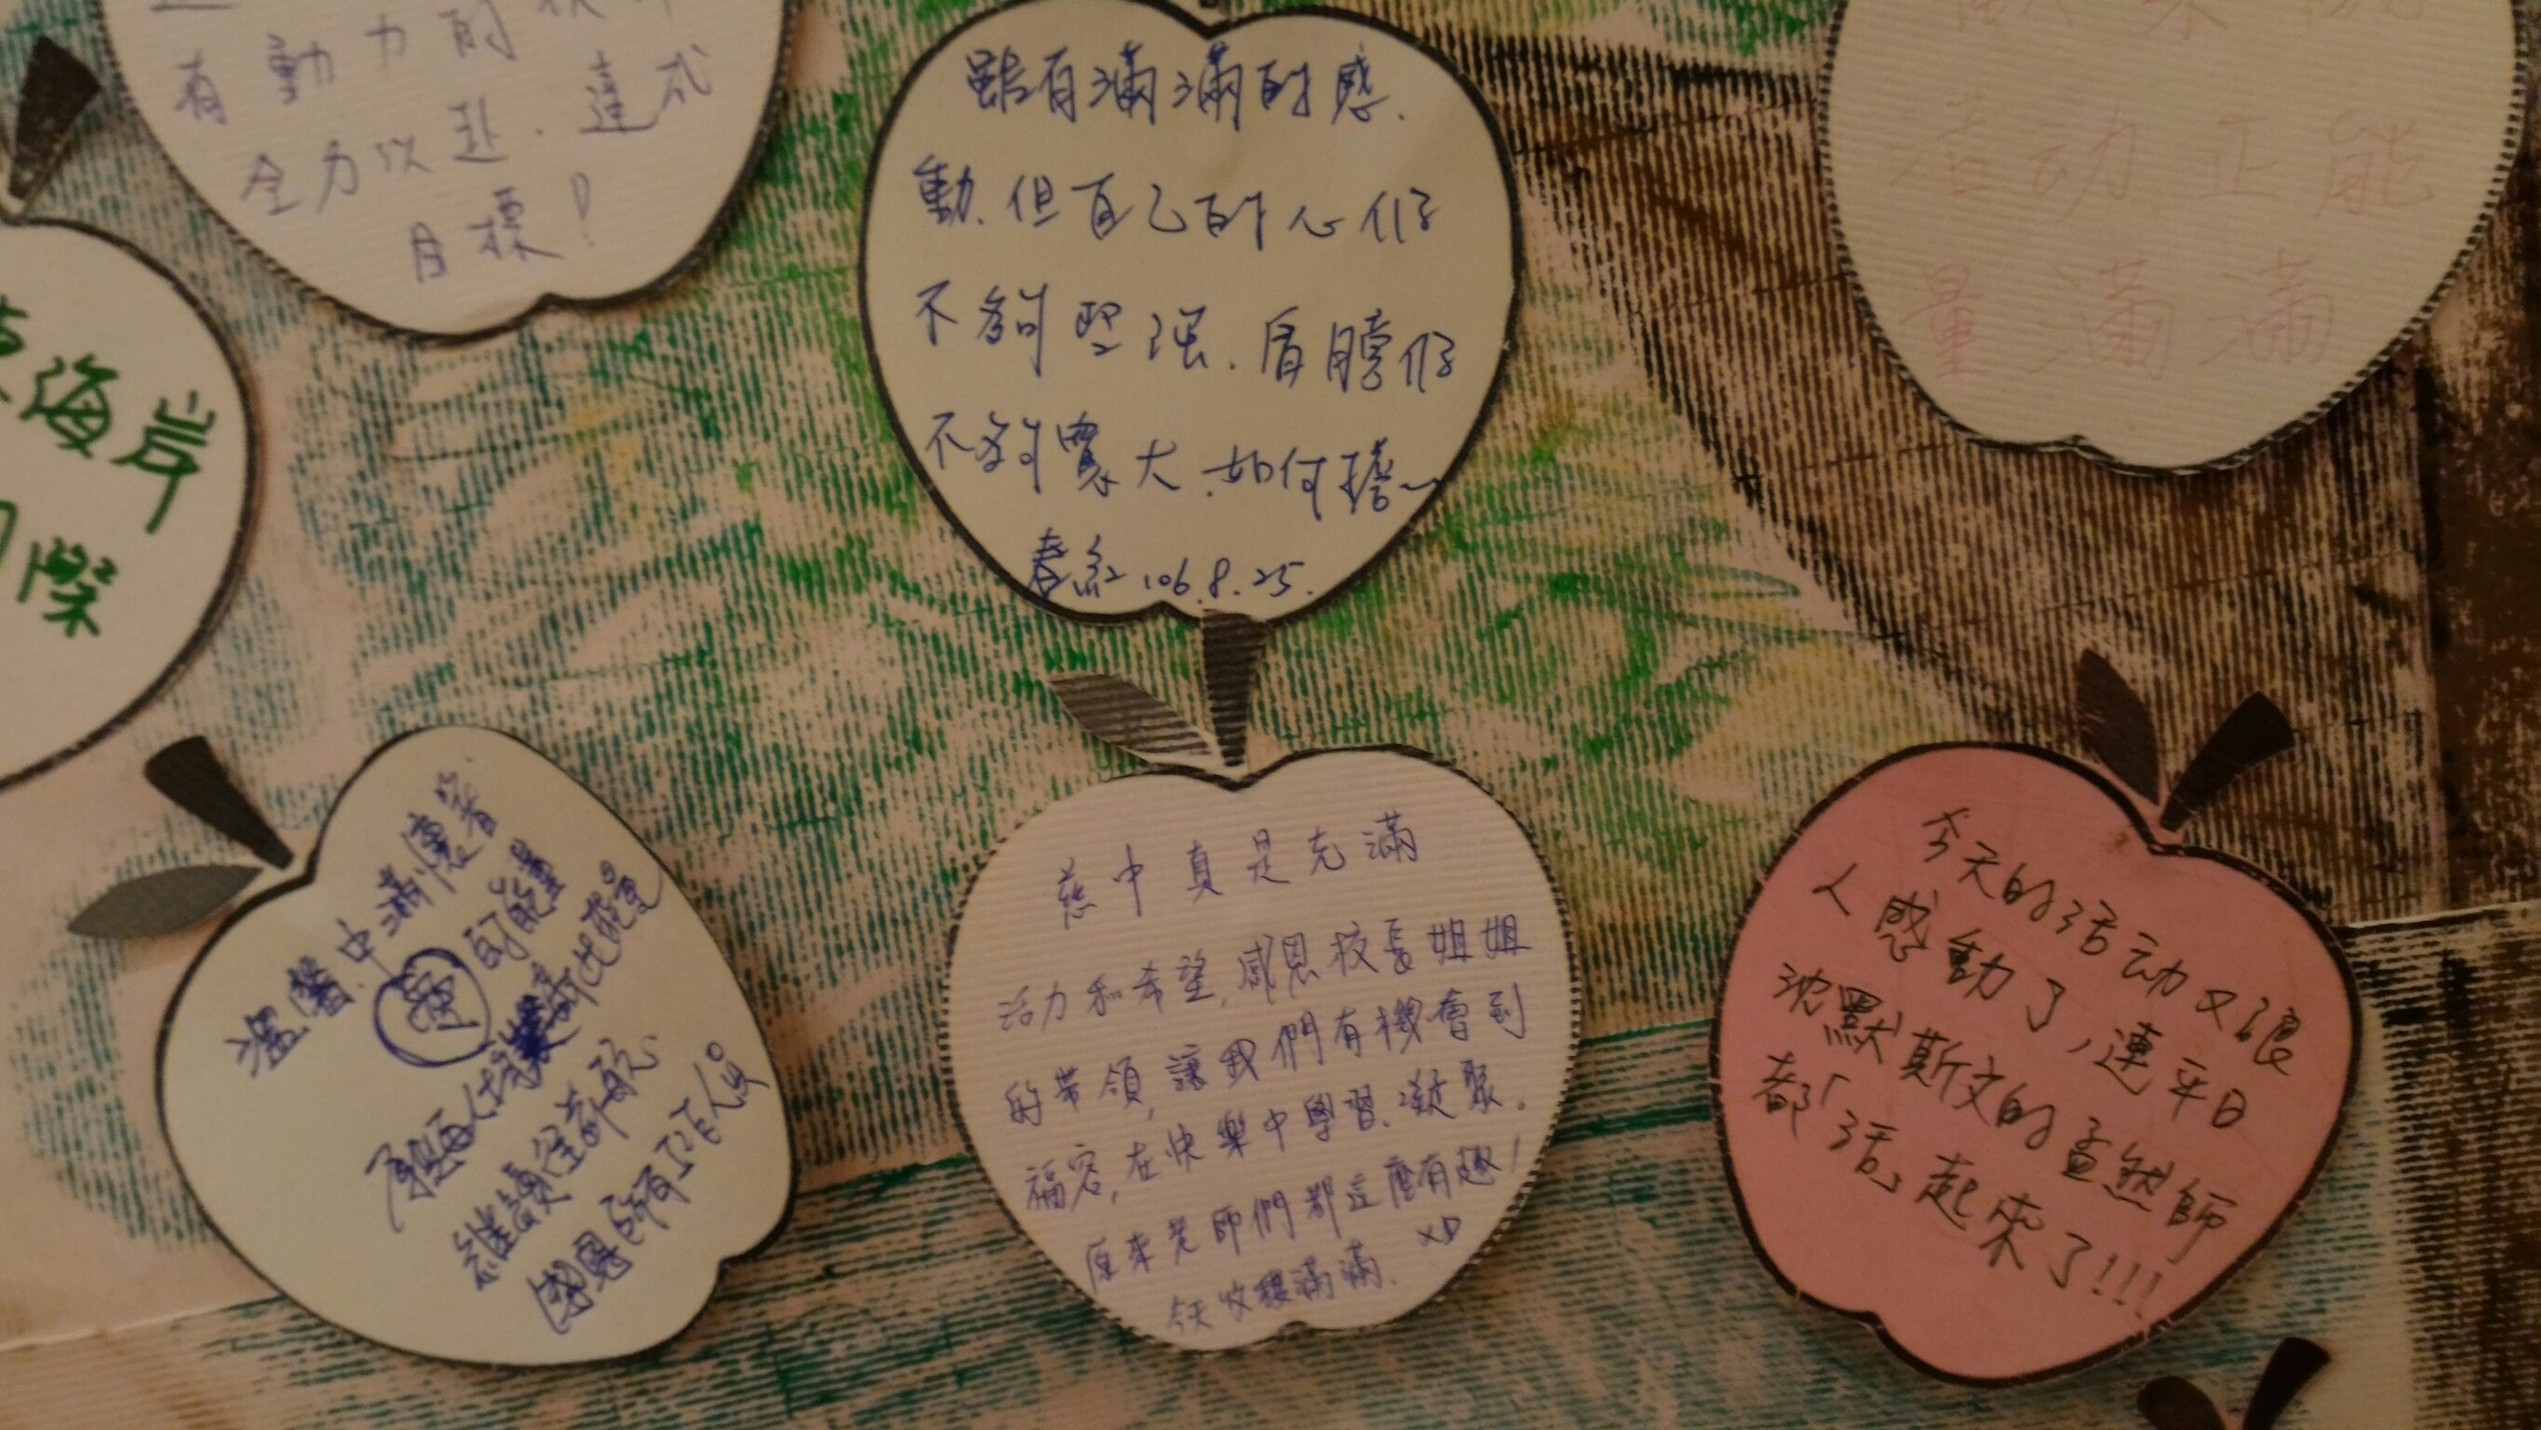 有動力的
全力以赴．達成
目標！
海岸
雖有滿滿的感、
動、但自己的心仍
不夠堅強、肩膀仍
不夠寬大．如何擔～
春紅 106.8.25.
活动正能
量滿滿
溫馨中滿懷著
愛的能量
繼續往前
感恩所有工作人員
慈中真是充滿
活力和希望，感恩校長姐姐
的帶領，讓我們有機會到
福容，在快樂中學習、凝聚。
原來老師們都這麼有趣！
XD
今天收穫滿滿．
今天的活动又讓
人感動了，連平日
沈默斯文的孟然師
都「活」起來了!!!